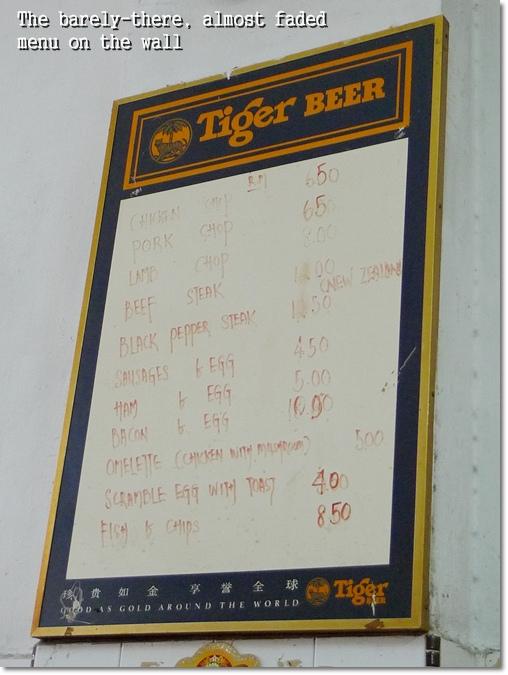 The barely-there, almost faded
menu on the wall
Tiger BEER
RM
CHICKEN CHOP 650
PORK CHOP 650
LAMB CHOP 8.00
BEEF STEAK 00 (NEW ZEALAND
BLACK PEPPER STEAK 50
SAUSAGES & EGG 450
HAM & EGG 5.00
BACON & EGG
OMELETTE (CHICKEN WITH MUSHROOM) 500
SCRAMBLE EGG WITH TOAST 400
FISH & CHIPS 850
珍贵如金 享誉全球
GOOD AS GOLD AROUND THE WORLD
Tiger
BEER